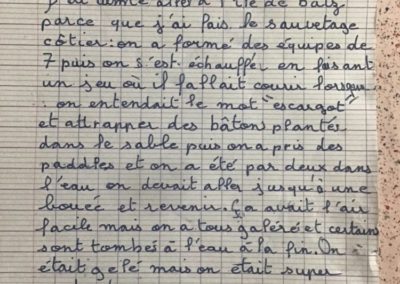 J'ai aimé aller à l'île de batz
parce que j'ai fais le sauvetage
côtier: on a formé des équipes de
7 puis on s'est échauffer en faisant
un jeu où il fallait courir lorsque
: on entendait le mot "escargot"
et attrapper des bâtons plantés
dans le sable puis on a pris des
paddles et on a été par deux dans
l'eau on devait aller jusqu'à une
bouée et revenir. Ça avait l'air
facile mais on a tous galéré et certains
sont tombés à l'eau à la fin. On
était gelé mais on était super